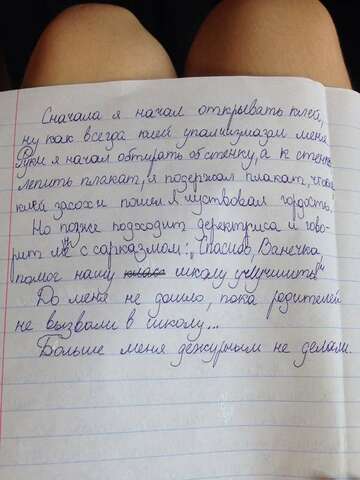 Сначала я начал открывать клей,
ну как всегда клей упалмизмазал меня.
Руки я начал обтирать об стенку, а к стенке
лепить плакат, я подержал плакат, чтобы
клей засох и пошел. Я чувствовал гордость.
Но позже подходит деректриса и гово-
рит мне с сарказмом: „Спасибо, Ванечка
помог нашу класс школу улучшить"
До меня не дошло, пока родителей
не вызвали в школу...
Больше меня дежурным не делали.